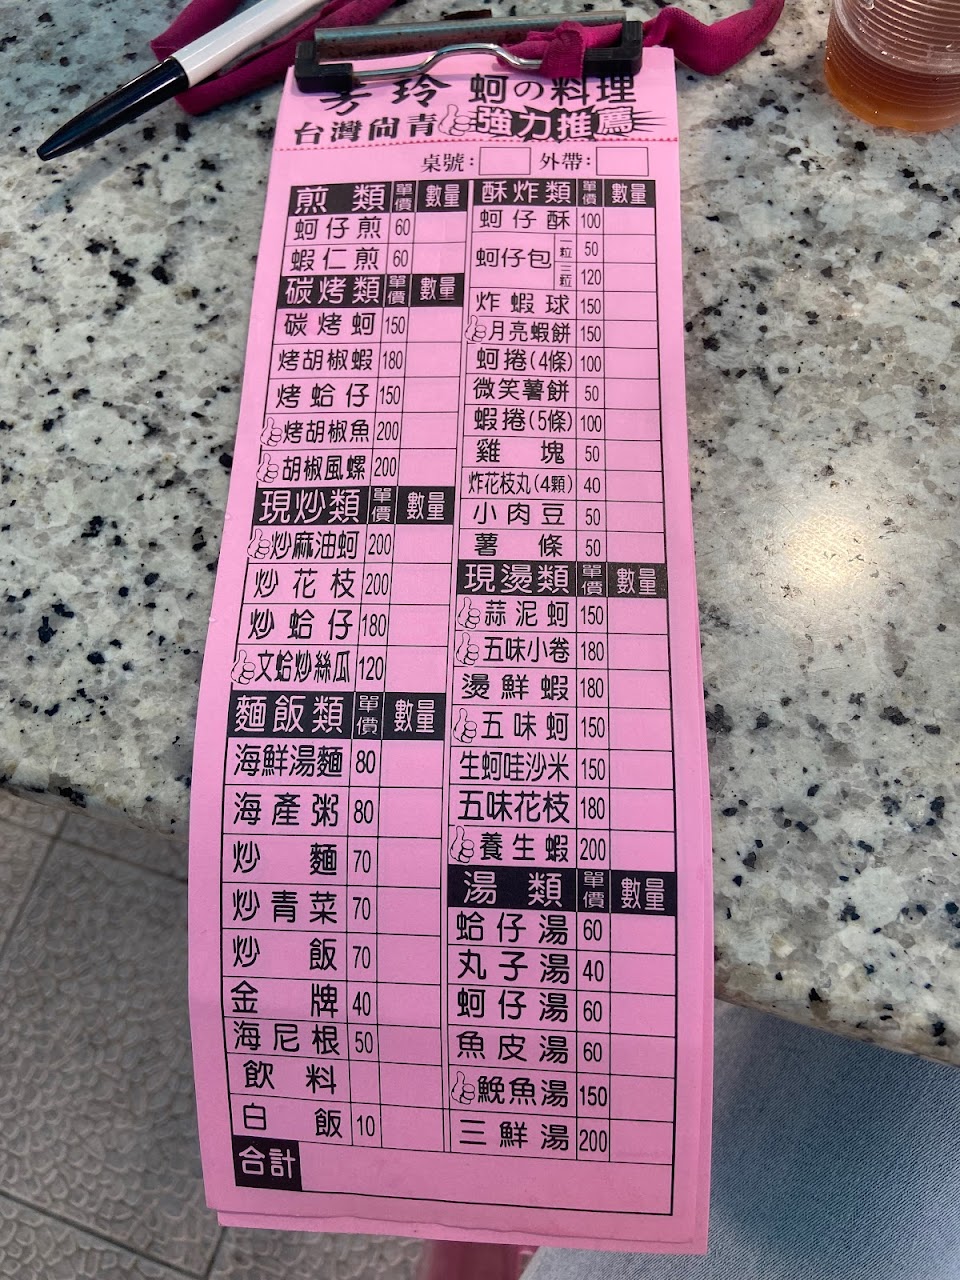 芳玲 蚵の料理
台灣尚青 強力推薦
桌號： 外帶：
煎類 單價 數量
蚵仔煎 60
蝦仁煎 60
碳烤類 單價 數量
碳烤蚵 150
烤胡椒蝦 180
烤蛤仔 150
烤胡椒魚 200
胡椒風螺 200
現炒類 單價 數量
炒麻油蚵 200
炒花枝 200
炒蛤仔 180
文蛤炒絲瓜 120
麵飯類 單價 數量
海鮮湯麵 80
海產粥 80
炒麵 70
炒青菜 70
炒飯 70
金牌 40
海尼根 50
飲料
白飯 10
合計
酥炸類 單價 數量
蚵仔酥 100
蚵仔包 一粒 50
三粒 120
炸蝦球 150
月亮蝦餅 150
蚵捲(4條) 100
微笑薯餅 50
蝦捲(5條) 100
雞塊 50
炸花枝丸(4顆) 40
小肉豆 50
薯條 50
現燙類 單價 數量
蒜泥蚵 150
五味小卷 180
燙鮮蝦 180
五味蚵 150
生蚵哇沙米 150
五味花枝 180
養生蝦 200
湯類 單價 數量
蛤仔湯 60
丸子湯 40
蚵仔湯 60
魚皮湯 60
鮸魚湯 150
三鮮湯 200